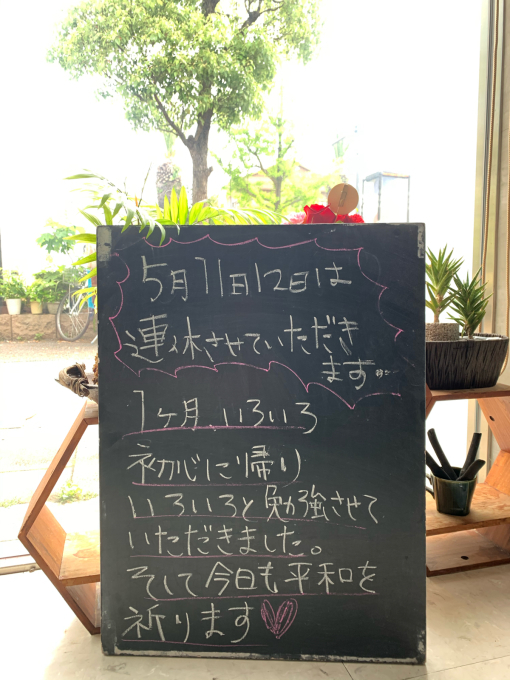 5月11日12日は
連休させていただき
ます
1ヶ月 いろいろ
初心に帰り
いろいろと勉強させて
いただきました。
そして今日も平和を
祈ります